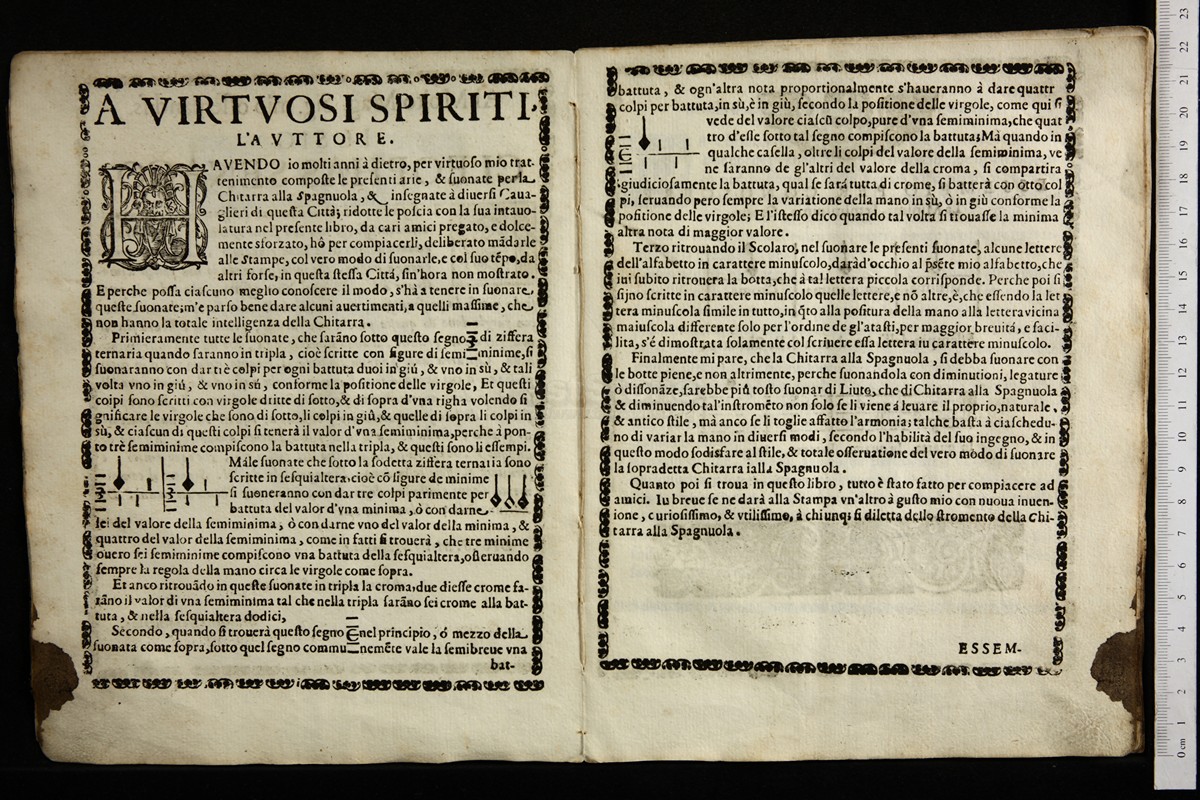 A VIRTVOSI SPIRITI.
L'AVTTORE.
HAVENDO io molti anni à dietro, per virtuoso mio trat-
tenimento composte le presenti arie, & suonate per la
Chitarra alla Spagnuola, & insegnate à diuersi Caua-
glieri di questa Città; ridotte le poscia con la sua intauo-
latura nel presente libro, da cari amici pregato, e dolce-
mente sforzato, hò per compiacerli, deliberato mādarle
alle Stampe, col vero modo di suonarle, e col suo tēpo, da
altri forse, in questa stessa Città, sin'hora non mostrato.
E perche possa ciascuno meglio conoscere il modo, s'hà a tenere in suonare
queste suonate; m'e parso bene dare alcuni auertimenti, a quelli massime, che
non hanno la totale intelligenza della Chitarra.
Primieramente tutte le suonate, che sarāno sotto questo segno 3 di ziffera
ternaria quando saranno in tripla, cioè scritte con figure di semiminime, si
suonaranno con dar tre colpi per ogni battuta duoi in giù, & vno in sù, & tali
volta vno in giù, & vno in sù, conforme la positione delle virgole, Et questi
colpi sono scritti con virgole dritte di sotto, & di sopra d'vna righa volendo si
gnificare le virgole che sono di sotto, li colpi in giù, & quelle di sopra li colpi in
sù, & ciascun di questi colpi si tenerà il valor d'vna semiminima, perche à pon-
to trè semiminime compiscono la battuta nella tripla, & questi sono li essempi.
Mà le suonate che sotto la sodetta ziffera ternaria sono
scritte in sesquialtera, cioè cō figure de minime
si suoneranno con dar tre colpi parimente per
battuta del valor d'vna minima, ò con darne
sei del valore della semiminima, ò con darne vno del valor della minima, &
quattro del valor della semiminima, come in fatti si trouerà, che tre minime
ouero sei semiminime compiscono vna battuta della sesquialtera, osseruando
sempre la regola della mano circa le virgole come sopra.
Et anco ritrouādo in queste suonate in tripla la croma, due diesse crome fa-
rāno il valor di vna semiminima tal che nella tripla sarāno sei crome alla bat-
tuta, & nella sesquialtera dodici,
Secondo, quando si trouerà questo segno C nel principio, ó mezzo della
suonata come sopra, sotto quel segno communemēte vale la semibreue vna
bat-
battuta, & ogn'altra nota proportionalmente s'haueranno à dare quattr
colpi per battuta, in sù, è in giù, secondo la positione delle virgole, come qui si
vede del valore ciascū colpo, pure d'vna semiminima, che quat
tro d'esse sotto tal segno compiscono la battuta; Mà quando in
qualche casella, oltre li colpi del valore della semiminima, ve
ne saranno de gl'altri del valore della croma, si compartira
giudiciosamente la battuta, qual se sarà tutta di crome, si batterà con otto col
pi, seruando pero sempre la variatione della mano in sù, ò in giù conforme la
positione delle virgole; E l'istesso dico quando tal volta si trouasse la minima
altra nota di maggior valore.
Terzo ritrouando il Scolaro, nel suonare le presenti suonate, alcune lettere
dell'alfabetto in carattere minuscolo, darà d'occhio al psēte mio alfabetto, che
iui subito ritrouera la botta, che à tal lettera piccola corrisponde. Perche poi si
sijno scritte in carattere minuscolo quelle lettere, e nō altre, è, che essendo la let
tera minuscula simile in tutto, in q̄to alla positura della mano alla lettera vicina
maiuscola differente solo per l'ordine de gl'atasti, per maggior breuità, e faci-
lita, s'é dimostrata solamente col scriuere essa lettera iu carattere minuscolo.
Finalmente mi pare, che la Chitarra alla Spagnuola, si debba suonare con
le botte piene, e non altrimente, perche suonandola con diminutioni, legature
ò dissonāze, sarebbe più tosto suonar di Liuto, che di Chitarra alla Spagnuola
& diminuendo tal'instromēto non solo se li viene á leuare il proprio, naturale,
& antico stile, mà anco se li toglie affatto l'armonia; talche basta à ciaschedu-
no di variar la mano in diuersi modi, secondo l'habilità del suo ingegno, & in
questo modo sodisfare al stile, & totale osseruatione del vero modo di suonare
la sopradetta Chitarra ialla Spagnuola.
Quanto poi si troua in questo libro, tutto è stato fatto per compiacere ad
amici. Iu breue se ne darà alla Stampa vn'altro à gusto mio con nuoua inuen-
ione, curiosissimo, & vtilissimo, à chiunq; si diletta dello stromento della Chi-
tarra alla Spagnuola.
ESSEM-
0 cm 1 2 3 4 5 6 7 8 9 10 11 12 13 14 15 16 17 18 19 20 21 22 23